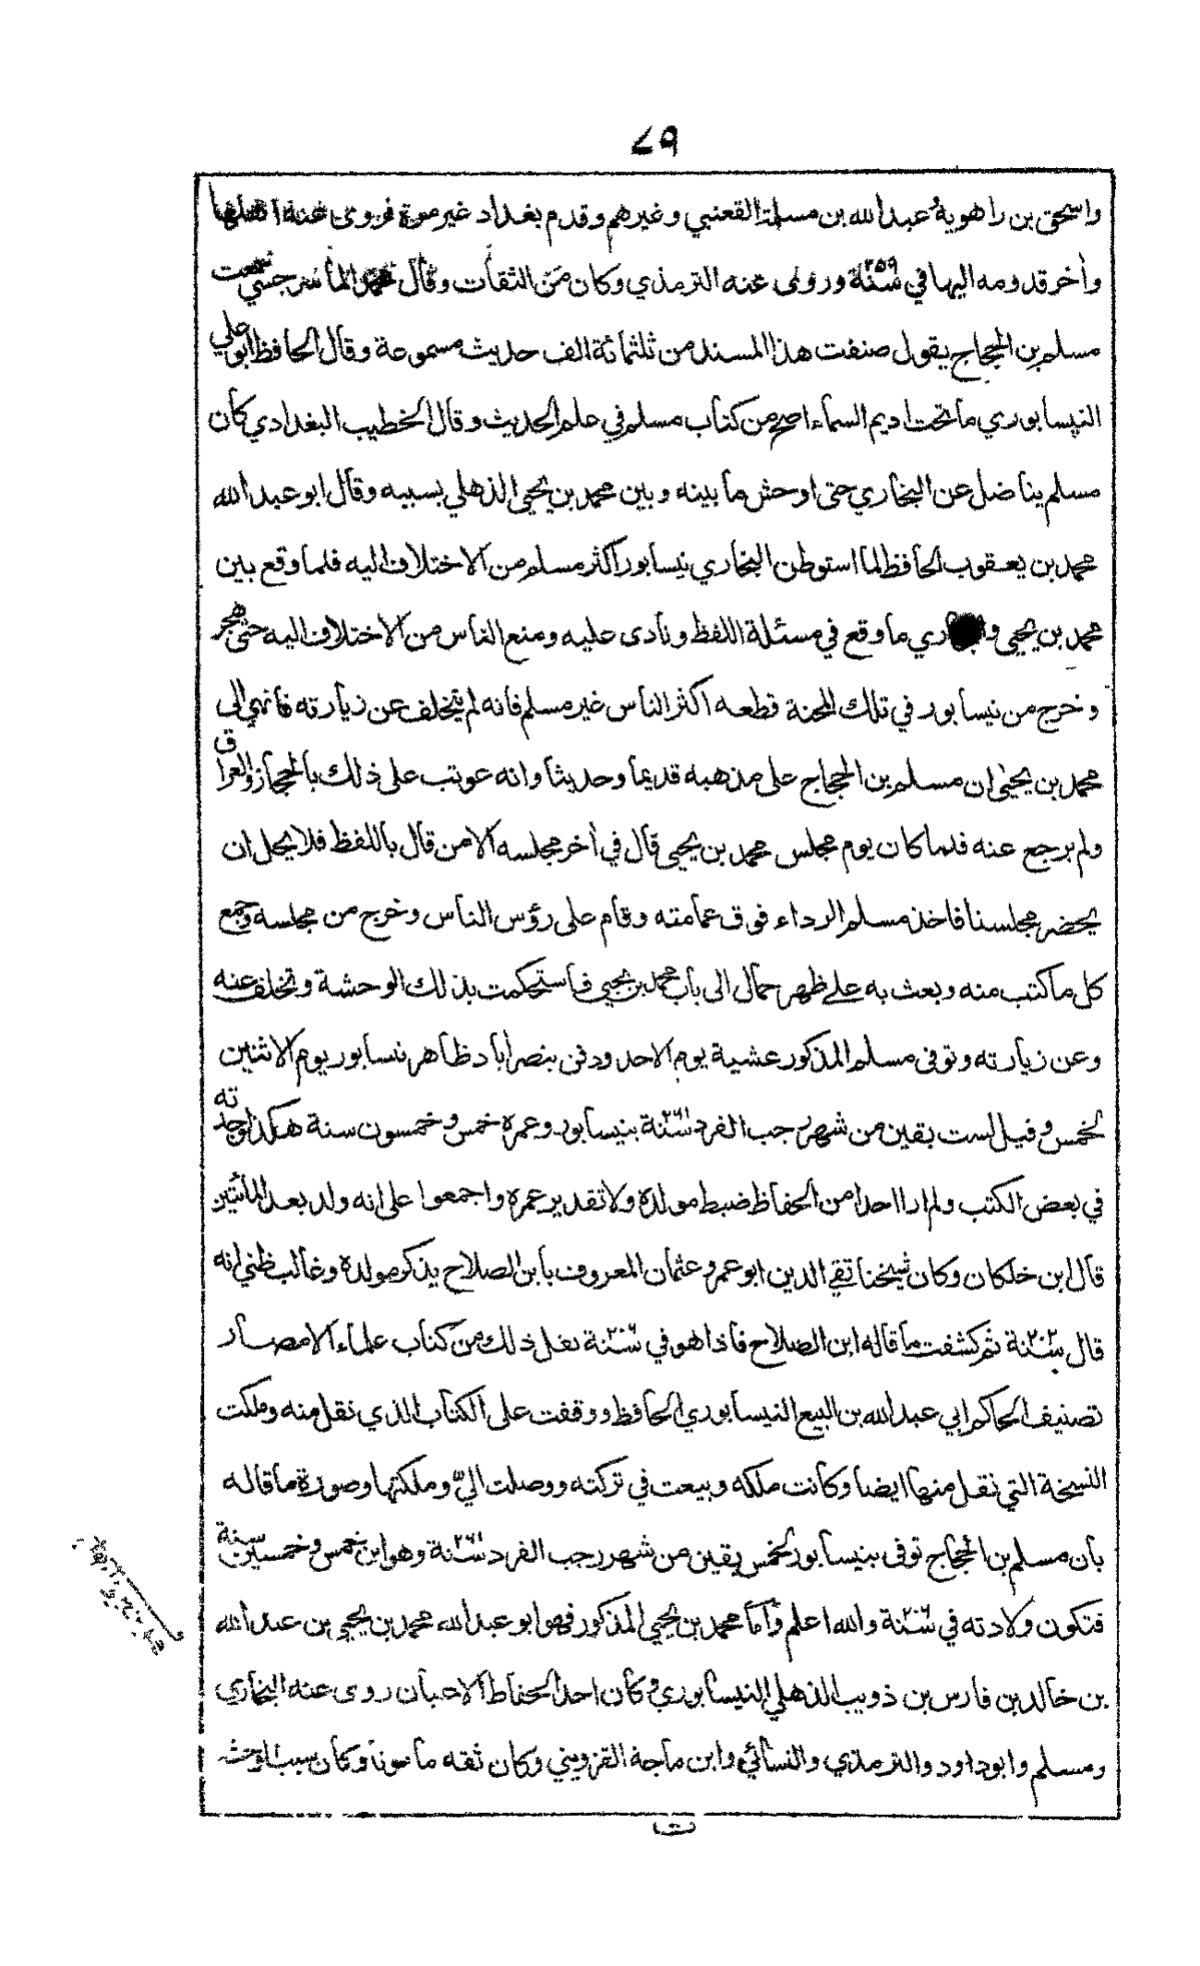 ٧٩
واسحق بن راهويه وعبد الله بن مسلمة القعنبي وغيرهم وقدم بغداد غير مرة فروى عنه اهلها
وأخر قدومه اليها في سنة ٢٥٩ وروى عنه الترمذي وكان من الثقات وقال محمد الماسرجسي سمعت
مسلم بن الحجاج يقول صنفت هذا المسند من ثلثمائة الف حديث مسموعة وقال الحافظ ابو علي
النيسابوري ما تحت اديم السماء اصح من كتاب مسلم في علم الحديث وقال الخطيب البغدادي كان
مسلم يناضل عن البخاري حتى اوحش ما بينه وبين محمد بن يحيى الذهلي بسببه وقال ابو عبد الله
محمد بن يعقوب الحافظ لما استوطن البخاري نيسابور اكثر مسلم من الاختلاف اليه فلما وقع بين
محمد بن يحيى و ري ما وقع في مسئلة اللفظ ونادى عليه ومنع الناس من الاختلاف اليه حتى هجر
وخرج من نيسابور في تلك المحنة قطعه اكثر الناس غير مسلم فانه لم يتخلف عن زيارته فانهي الى
محمد بن يحيى ان مسلم بن الحجاج على مذهبه قديما وحديثا وانه عوتب على ذلك بالحجاز والعراق
ولم يرجع عنه فلما كان يوم مجلس محمد بن يحيى قال في أخر مجلسه الا من قال باللفظ فلا يحل ان
يحضر مجلسنا فاخذ مسلم الرداء فوق عمامته وقام على رؤس الناس وخرج من مجلسه وجمع
كل ما كتب منه وبعث به على ظهر حمال الى باب محمد بن يحيى فاستحكمت بذلك الوحشة وتخلف عنه
وعن زيارته وتوفى مسلم المذكور عشية يوم الاحد ودفن بنصرأباد ظاهر نسابور يوم الاثنين
لخمس وقيل لست بقين من شهر رجب الفرد سنة ٢٦١ بنيسابور وعمره خمس وخمسون سنة هكذا وجدته
في بعض الكتب ولم ار احدا من الحفاظ ضبط مولده ولا تقدير عمره واجمعوا على انه ولد بعد المأتين
قال ابن خلكان وكان شيخنا تقي الدين ابو عمرو عثمان المعروف بابن الصلاح يذكر مولده وغالب ظني انه
قال سنة ٢٠٢ ثم كشفت ما قاله ابن الصلاح فاذا هو في سنة ٢٠٦ نقل ذلك من كتاب علماء الامصار
تصنيف الحاكم ابي عبد الله بن البيع النيسابوري الحافظ ووقفت على الكتاب الذي نقل منه وملكت
النسخة التي نقل منها ايضا وكانت ملكه وبيعت في تركته ووصلت اليّ وملكتها وصورة ما قاله
بان مسلم بن الحجاج توفى بنيسابور لخمس بقين من شهر رجب الفرد سنة ٢٦١ وهو ابن خمس وخمسين سنة
فتكون ولادته في سنة ٢٠٦ والله اعلم وأما محمد بن يحيى المذكور فهو ابو عبد الله محمد بن يحيى بن عبد الله
بن خالد بن فارس بن ذويب الذهلي النيسابوري وكان احد الحفاظ الاعيان روى عنه البخاري
ومسلم وابو داود والترمذي والنسائي وابن ماجة القزويني وكان ثقه مامونا وكان سبب الوحشة